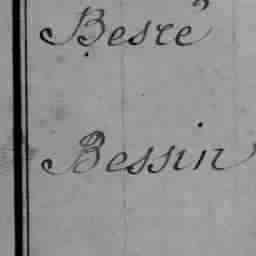 Besrê
Bessin